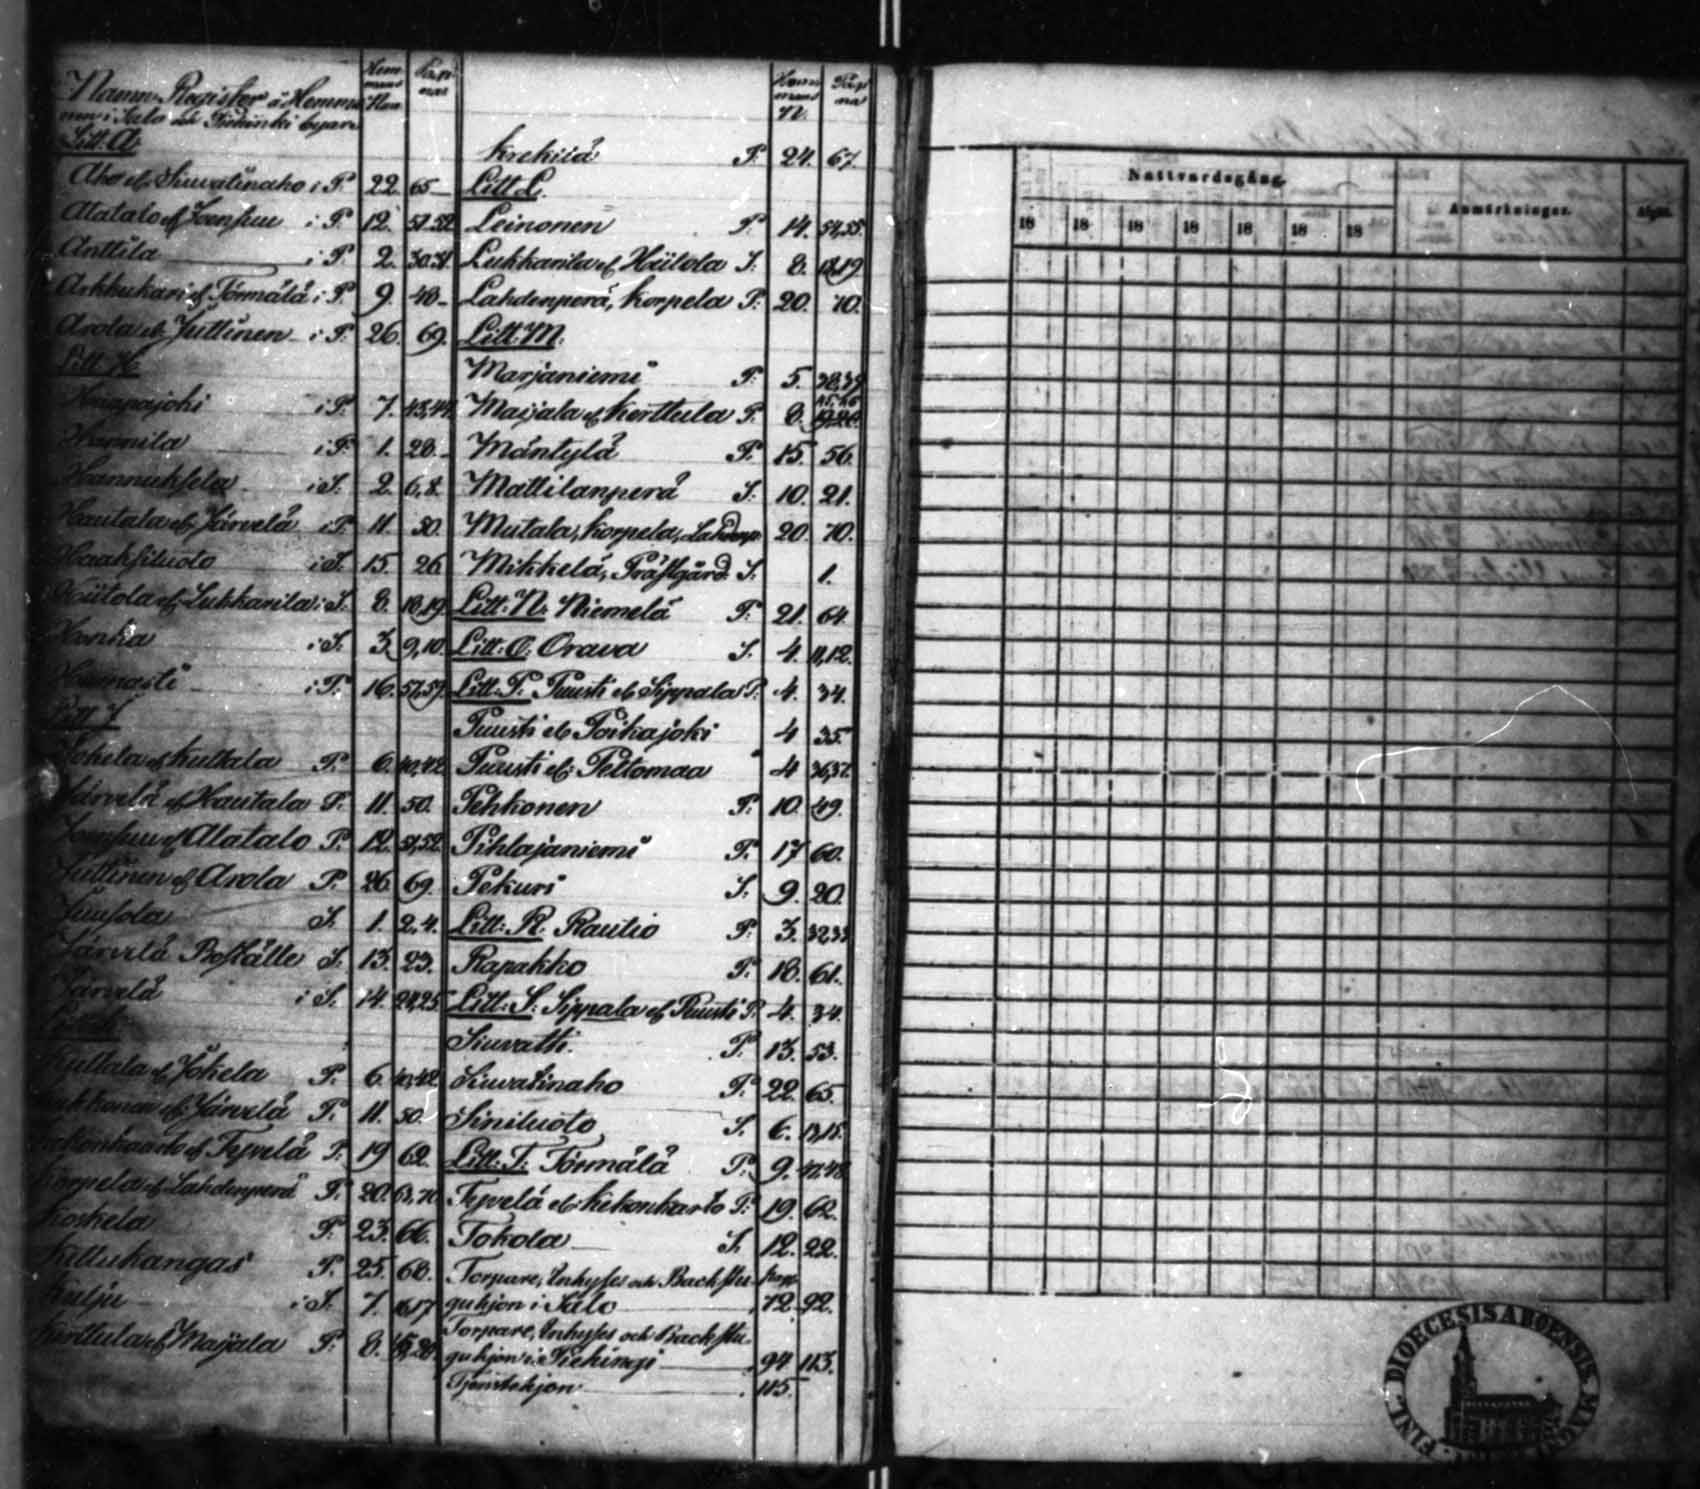 Namn-Register å Hemma-
nen i Salo och Piehinki byar.
Hem-
mans
Nro
Pagi-
na
Litt: A.
Aho el. Siuvatinaho i P. 22. 65
Alatalo el. Joensuu i P. 12. 51,52
Anttila i P. 2. 30,31
Arkkukari el. Törmälä i P. 9. 48
Arola el. Juttinen i P. 26. 69.
Litt. H.
Haapajoki i P. 7. 43,44
Hannila i P. 1. 28.
Hannuksela i S. 2. 6,8.
Hautala el. Järvelä i P. 11. 50.
Haaksiluoto i S. 15. 26
Hiitola el. Lukkarila i S. 8. 18,19
Honka i S. 3. 9,10.
i P. 16. 57,59.
Litt J
Jokela el. Kultala P. 6. 40,42
Järvelä el. Hautala P. 11. 50.
Joensuu el. Alatalo P. 12. 51,52.
Juttinen el. Arola P. 26. 69.
Juusola S. 1. 2,4.
Järvelä Boställe S. 13. 23.
Järvelä i S. 14. 24,25
Kultala el. Jokela P. 6. 40,42
el. Järvelä P. 11. 50.
el. Tyvelä P. 19 62.
Korpela el. Lahdenperä P. 20. 63,70.
Koskela P. 23. 66.
Kittukangas P. 25. 68.
Kulju i S. 7. 16,17
Kerttula el. Maijala P. 8.
Hem-
mans
N.
Pagi-
na
Krekilä P. 24. 67.
Litt L.
Leinonen P. 14. 54,55.
Lukkarila el. Hiitola S. 8. 18,19
Lahdenperä, Korpela P. 20. 70.
Litt: M.
Marjaniemi P. 5. 38,39
Maijala el. Kerttula P. 8.
Mäntylä P. 15. 56.
Mattilanperä S. 10. 21.
Mutala, Korpela, Lahdenp. 20. 70.
Mikkelä, Prästgård. S. 1.
Litt: N: Niemelä P. 21. 64
Litt: O: Orava S. 4. 11,12.
Litt: P. Puusti el. Sippala P. 4. 34.
Puusti el. Poikajoki 4 35.
Puusti el. Peltomaa " 4 36,37.
Pehkonen P. 10. 49.
Pihlajaniemi P. 17 60.
Pekuri S. 9. 20.
Litt: R. Rautio P. 3. 32,33
Rapakko P. 18. 61.
Litt: S: Sippala el. Puusti P. 4. 34.
Siuvatti P. 13. 53.
Siuvatinaho P. 22. 65.
Siniluoto S. 6.
Litt: T: Törmälä P. 9. 47,48
Tyvelä el. Kekonkarto P. 19. 62.
Tokola S. 12. 22.
Torpare, Inhyses och Backstu- pag.
guhjon i Salo 72-92.
Torpare, Inhyses och Backstu-
guhjon i Piehingi 94. 113.
Tjenstehjon 115.
Nattvardsgång. Anmärkningar.
18 18 18 18 18 18 18
FINL. DIOECESIS ABOENSIS MAGNI